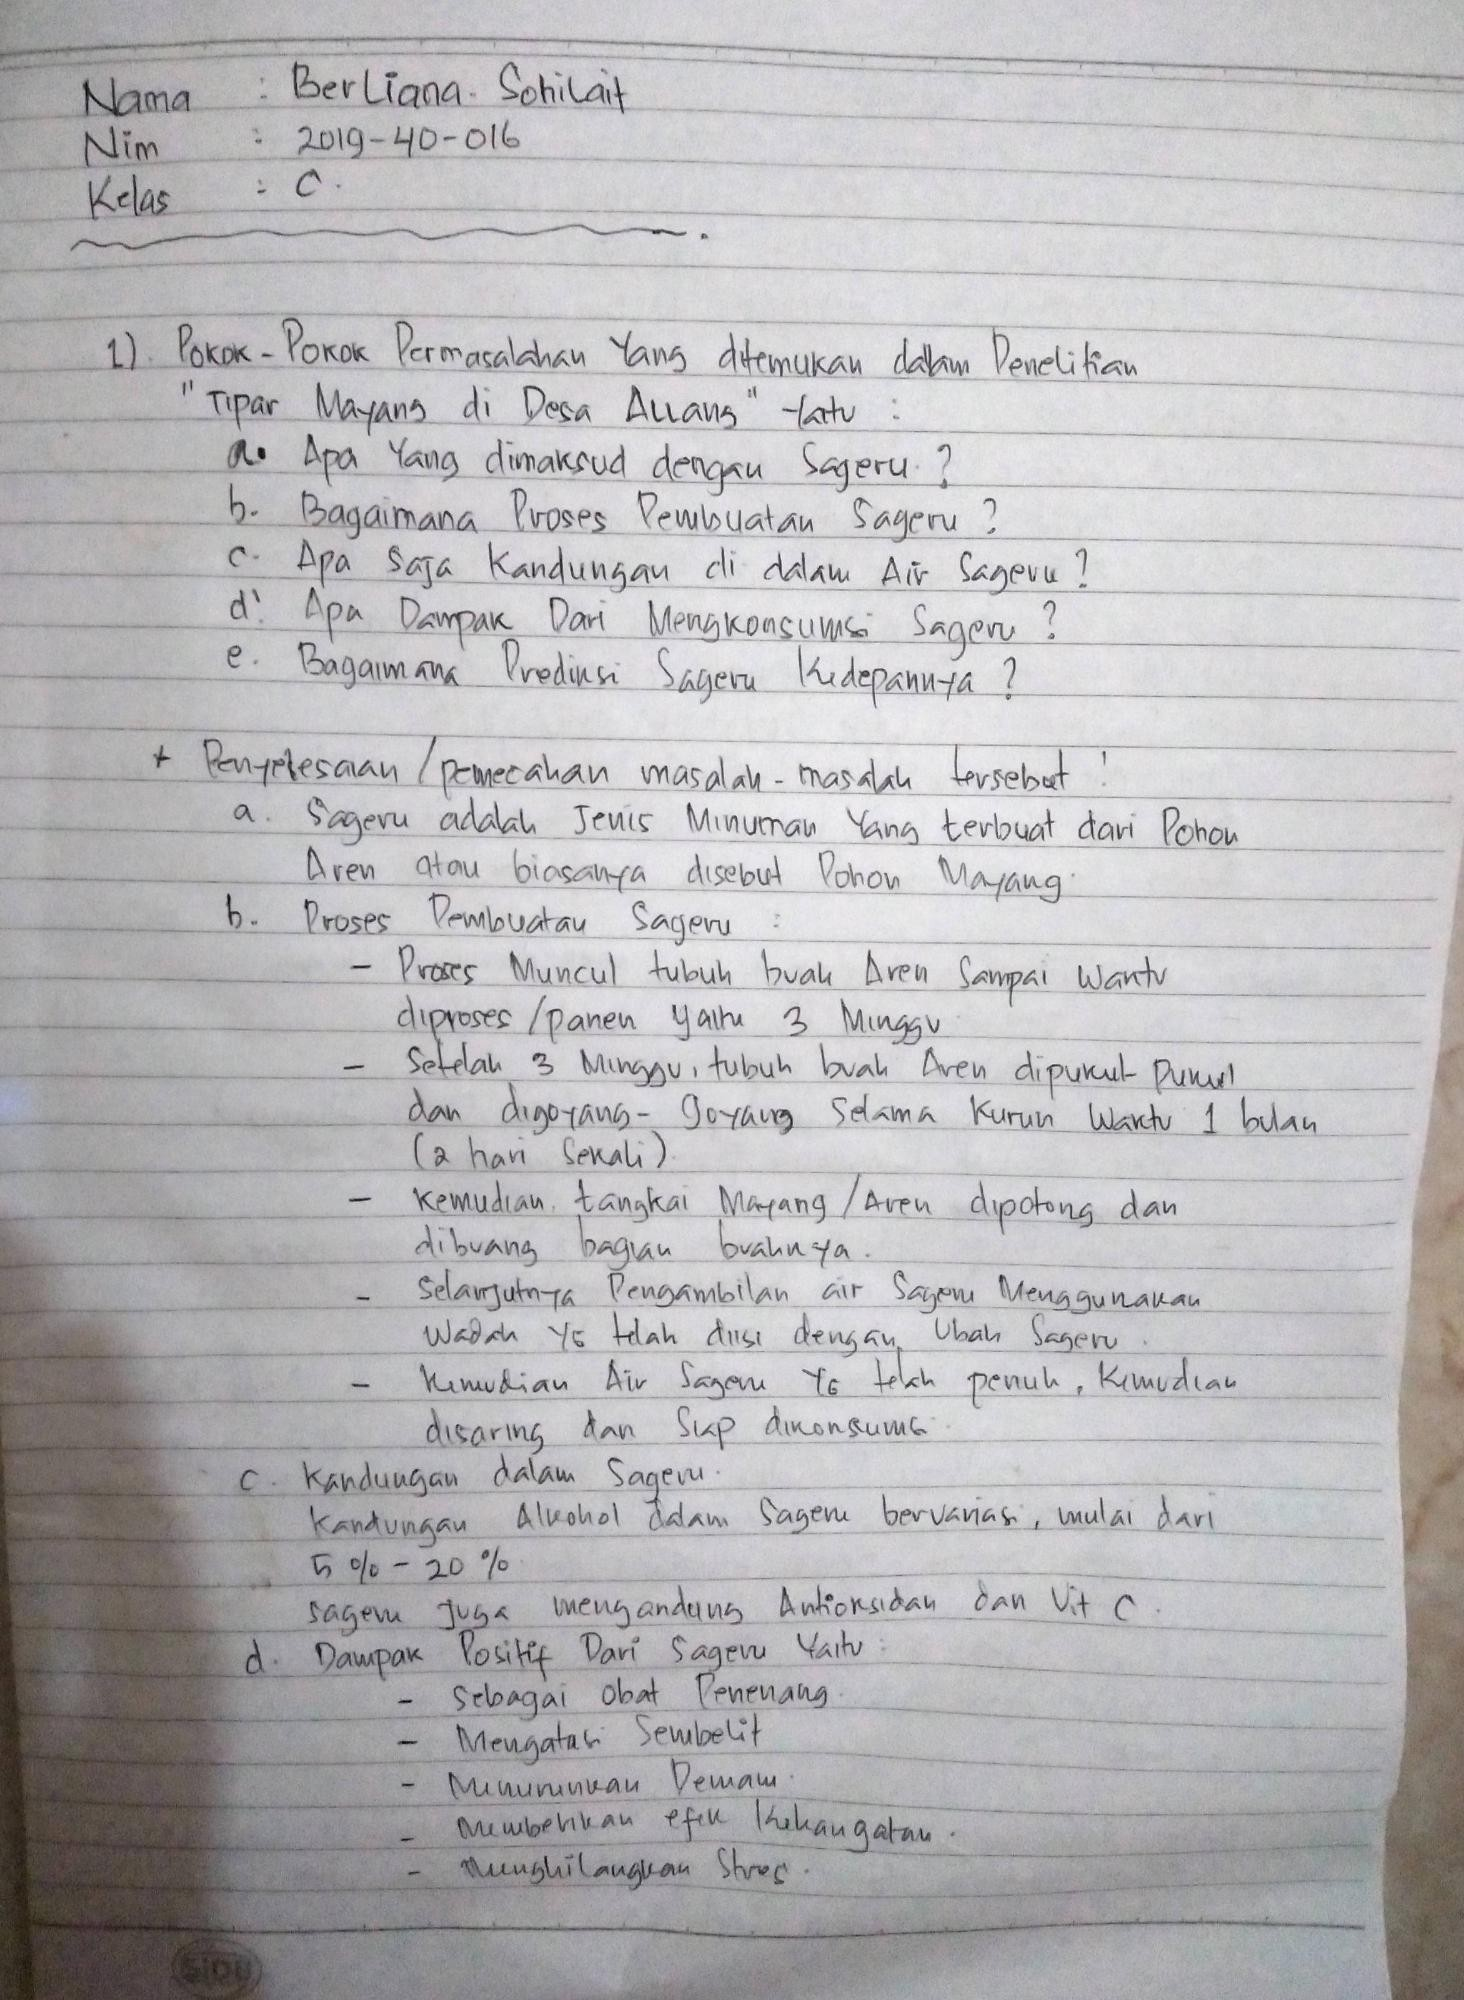 Nama : Berliana. Sohilait
Nim : 2019-40-016
Kelas : C.
1). Pokok-Pokok Permasalahan Yang ditemukan dalam Penelitian
"Tipar Mayang di Desa Allang" Yaitu :
a. Apa Yang dimaksud dengan Sageru ?
b. Bagaimana Proses Pembuatan Sageru ?
c. Apa Saja Kandungan di dalam Air Sageru ?
d. Apa Dampak Dari Mengkonsumsi Sageru ?
e. Bagaimana Prediksi Sageru Kedepannya ?
* Penyelesaian / pemecahan masalah-masalah tersebut !
a. Sageru adalah Jenis Minuman Yang terbuat dari Pohon
Aren atau biasanya disebut Pohon Mayang.
b. Proses Pembuatan Sageru :
- Proses Muncul tubuh buah Aren Sampai Waktu
diproses / panen yaitu 3 Minggu
- Setelah 3 Minggu, tubuh buah Aren dipukul-Pukul
dan digoyang-goyang Selama Kurun Waktu 1 bulan
(2 hari Sekali).
- Kemudian, tangkai Mayang / Aren dipotong dan
dibuang bagian buahnya.
- Selanjutnya Pengambilan air Sageru Menggunakan
Wadah YG telah diisi dengan Ubah Sageru.
- Kemudian Air Sageru YG telah penuh, Kemudian
disaring dan Siap dikonsumsi.
c. Kandungan dalam Sageru.
Kandungan Alkohol dalam Sageru bervariasi, mulai dari
5 % - 20 %
Sageru Juga mengandung Antioksidan dan Vit C.
d. Dampak Positif Dari Sageru Yaitu :
- Sebagai Obat Penenang.
- Mengatasi Sembelit
- Menurunkan Demam.
- Memberikan efek Kehangatan.
- Menghilangkan Stres.
SiDU